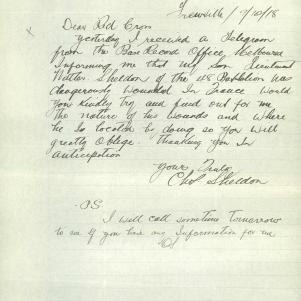 / 9/10/18
Dear Red Cross
yesterday I received a Telegram
from the Base Record Office, Melbourne
Informing me that my son Lieutenant
Walter Sheldon of the Battalion was
dangerously wounded In France would
you kindly try and find out for me
the nature of his wounds and where
he is located by doing so you will
greatly Oblege. thanking you In
anticipation
yours Truly
Chas Sheldon
PS
I will call sometime tomorrow
to see if you have any Information for me